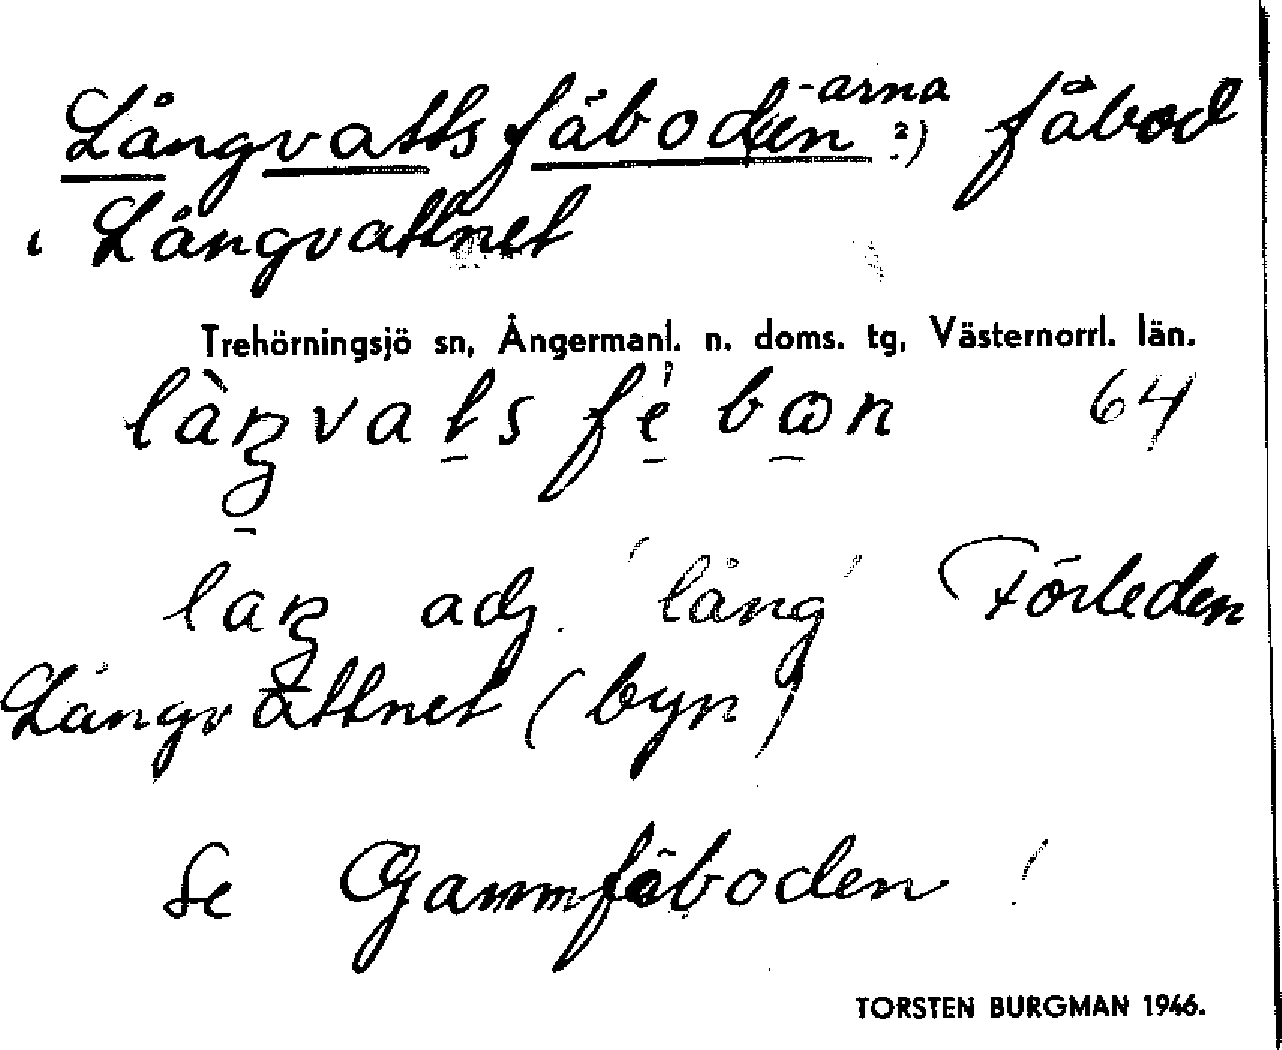 Långvattsfäboden -arna ?) fäbod
i Långvattnet
Trehörningsjö sn, Ångermanl. n. doms. tg, Västernorrl. län.
làŋvats fé bɷn 64
laŋ adj. 'lång' Förleden
Långvattnet (byn)
Se Gammfäboden !
TORSTEN BURGMAN 1946.